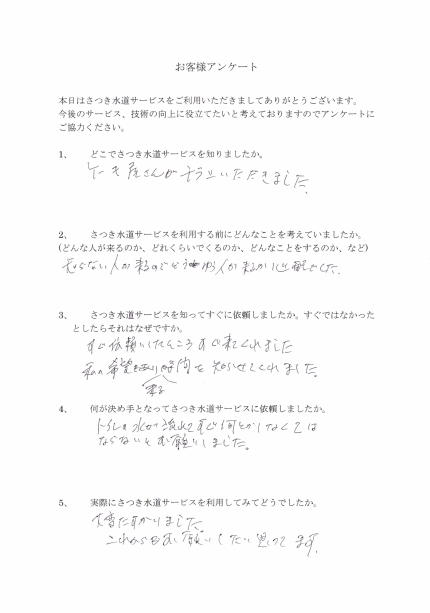 お客様アンケート
本日はさつき水道サービスをご利用いただきましてありがとうございます。
今後のサービス、技術の向上に役立てたいと考えておりますのでアンケートに
ご協力ください。
1、 どこでさつき水道サービスを知りましたか。
ケーキ屋さんが いただきました。
2、 さつき水道サービスを利用する前にどんなことを考えていましたか。
(どんな人が来るのか、どれくらいでくるのか、どんなことをするのか、など)
知らない人が来るのでどう ゆう人が来るか心配でした。
3、 さつき水道サービスを知ってすぐに依頼しましたか。すぐではなかった
としたらそれはなぜですか。
すぐ依頼いたしたところすぐ来てくれました
私の希望 時間を知らせてくれました。
来る
4、 何が決め手となってさつき水道サービスに依頼しましたか。
トイレの水が流れてすぐ何とかしなくては
ならないとお願いしました。
5、 実際にさつき水道サービスを利用してみてどうでしたか。
大変たすかりました。
これからもお願いしたい思ってます。